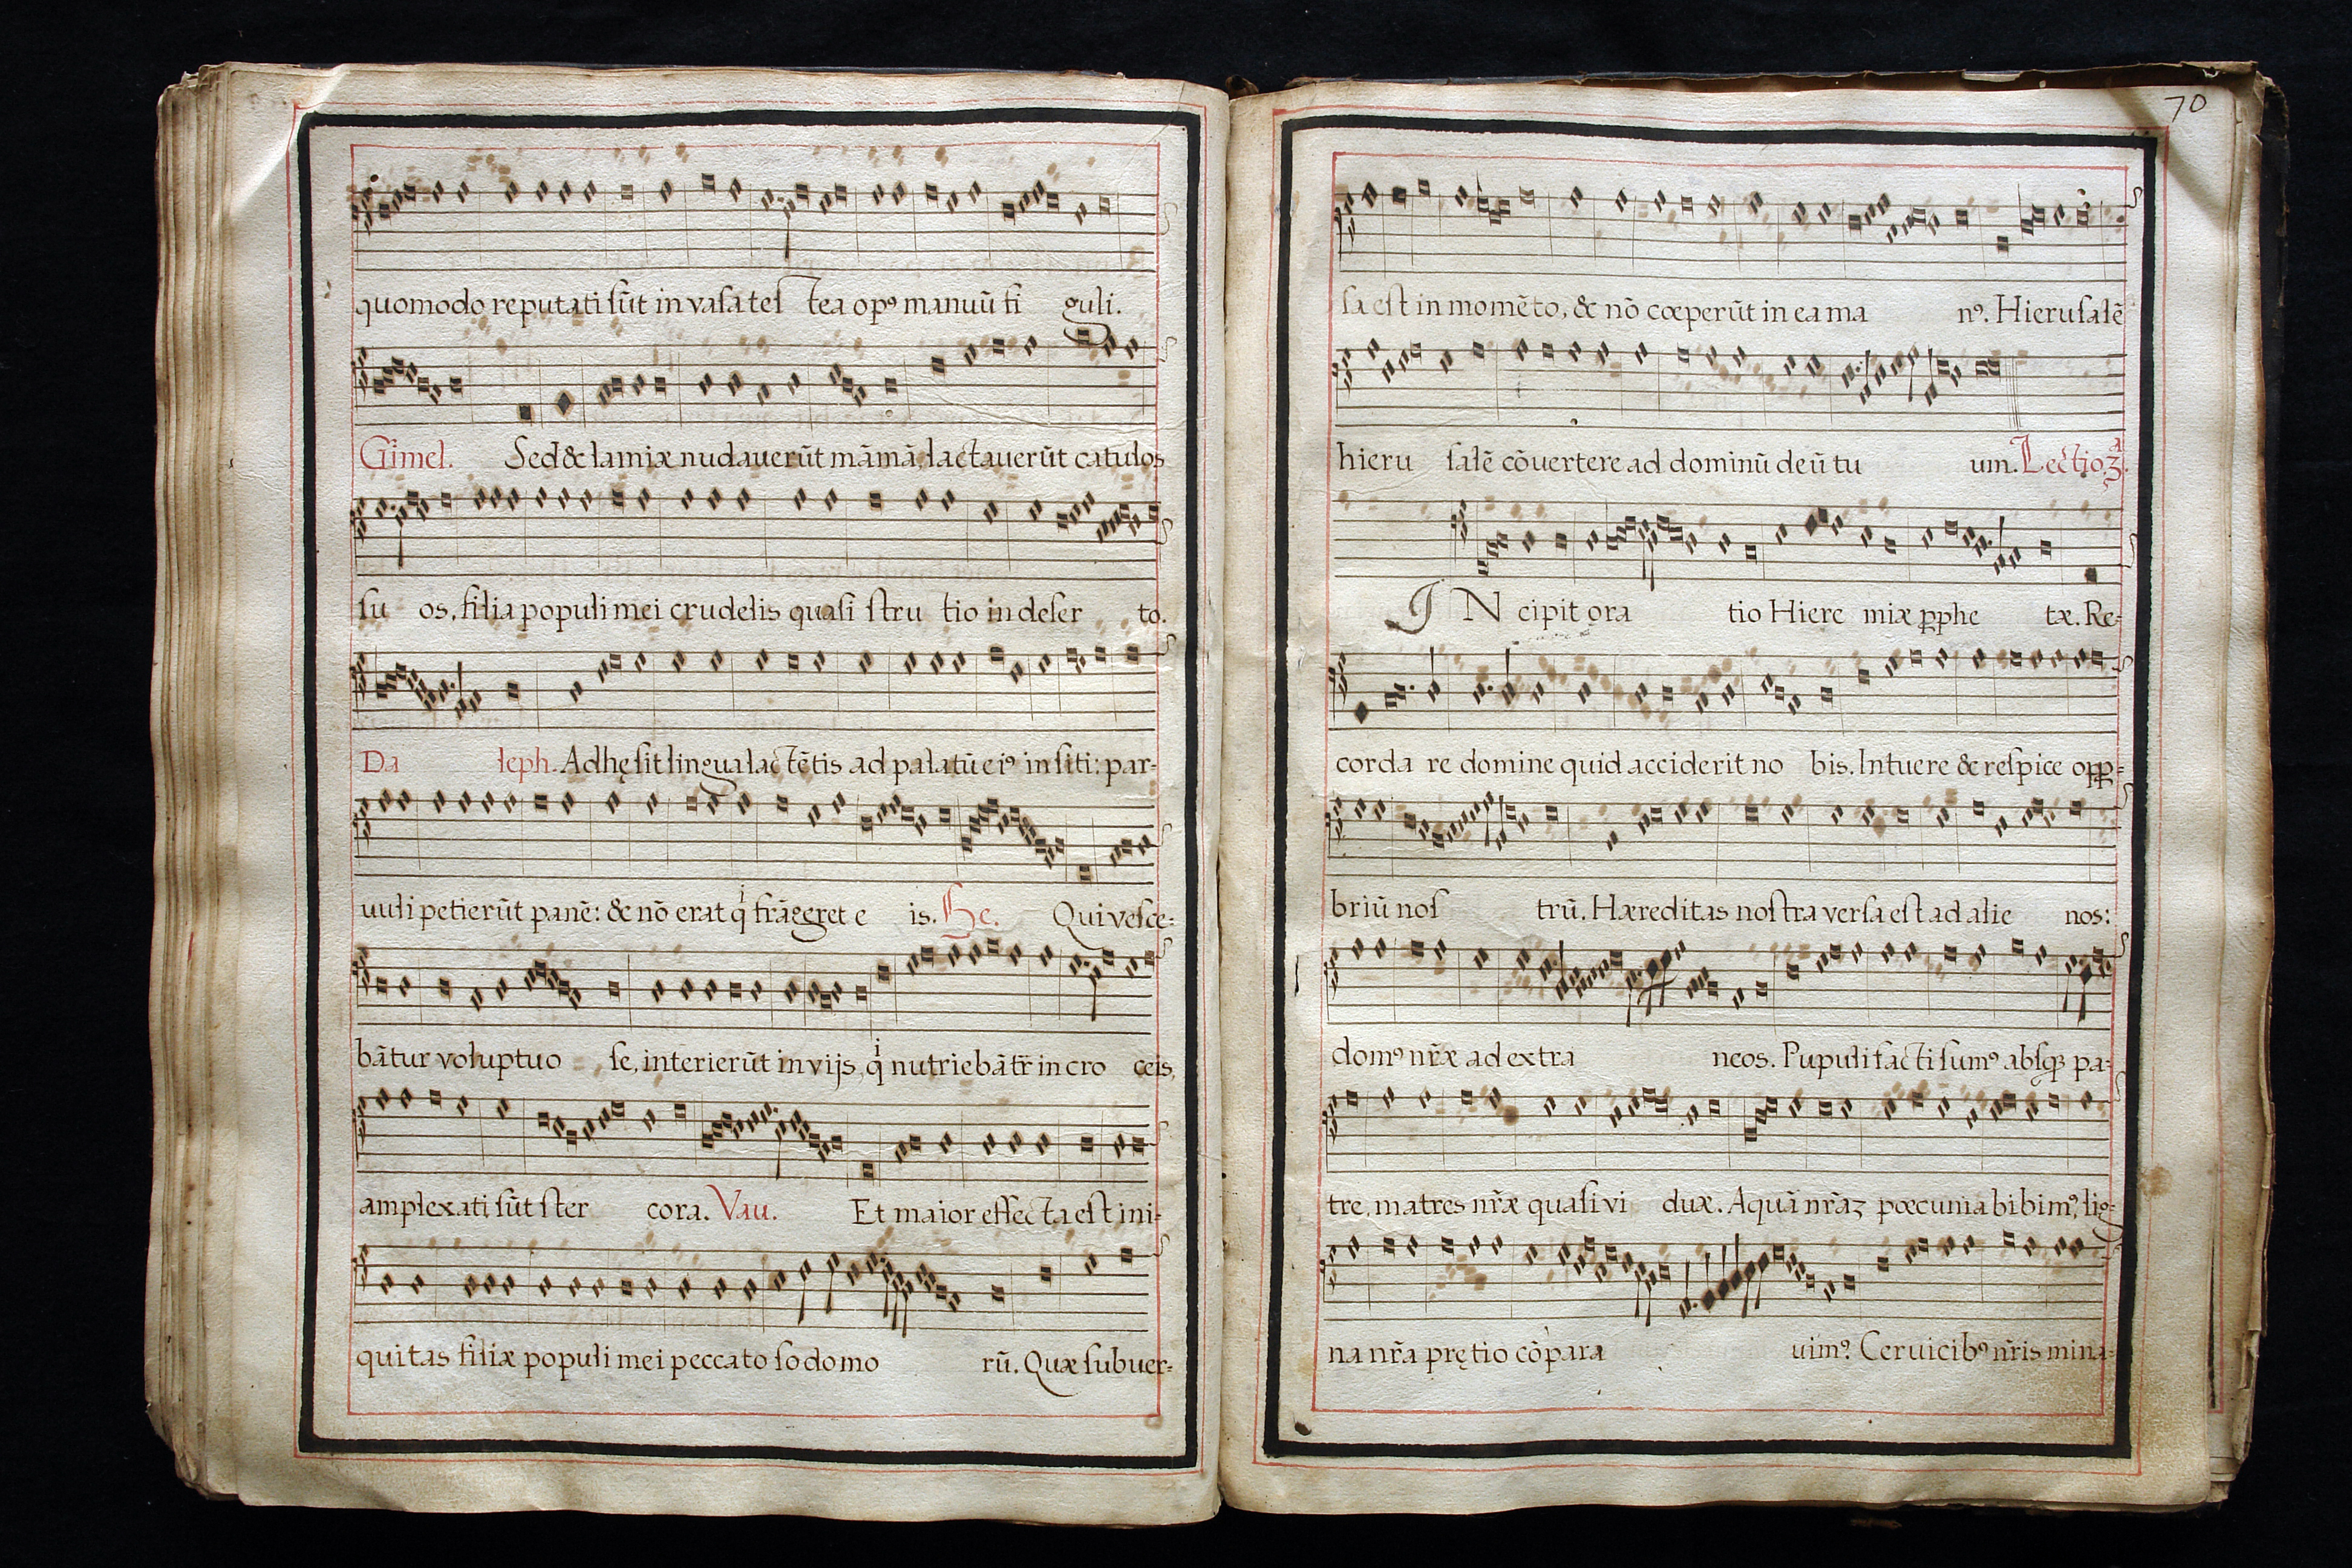 quomodo reputati sũt in vasa tes tea opꝰ manuũ fi guli.
Gimel. Sed & lamiæ nudauerũt mãmã, lactauerũt catulos
su os, filia populi mei crudelis quasi stru tio in deser to.
Da leph. Adhęsit lingua lactẽtis ad palatũ eiꝰ in siti: par-
uuli petierũt panẽ: & nõ erat qͥ frãgeret e is. He. Qui vesce-
bãtur voluptuo se, interierũt in vijs, qͥ nutriebãtr̃ in cro ceis,
amplexati sũt ster cora. Vau. Et maior effecta est ini-
quitas filiæ populi mei peccato sodomo rũ. Quæ subuer-
70
sa est in momẽto, & nõ cœperũt in ea ma nꝰ. Hierusalẽ
hieru salẽ cõuertere ad dominũ deũ tu um. Lectio 3ª.
IN cipit ora tio Hiere miæ ꝓphe tæ. Re-
corda re domine quid acciderit no bis. Intuere & respice opp-
briũ nos trũ. Hæreditas nostra versa est ad alie nos:
domꝰ nr̃æ ad extra neos. Pupuli facti sumꝰ absqꝫ pa-
tre, matres nr̃æ quasi vi duæ. Aquã nr̃ãʒ pœcunia bibimꝰ, lig-
na nr̃a prętio cõpara uimꝰ. Ceruicibꝰ nr̃is mina-